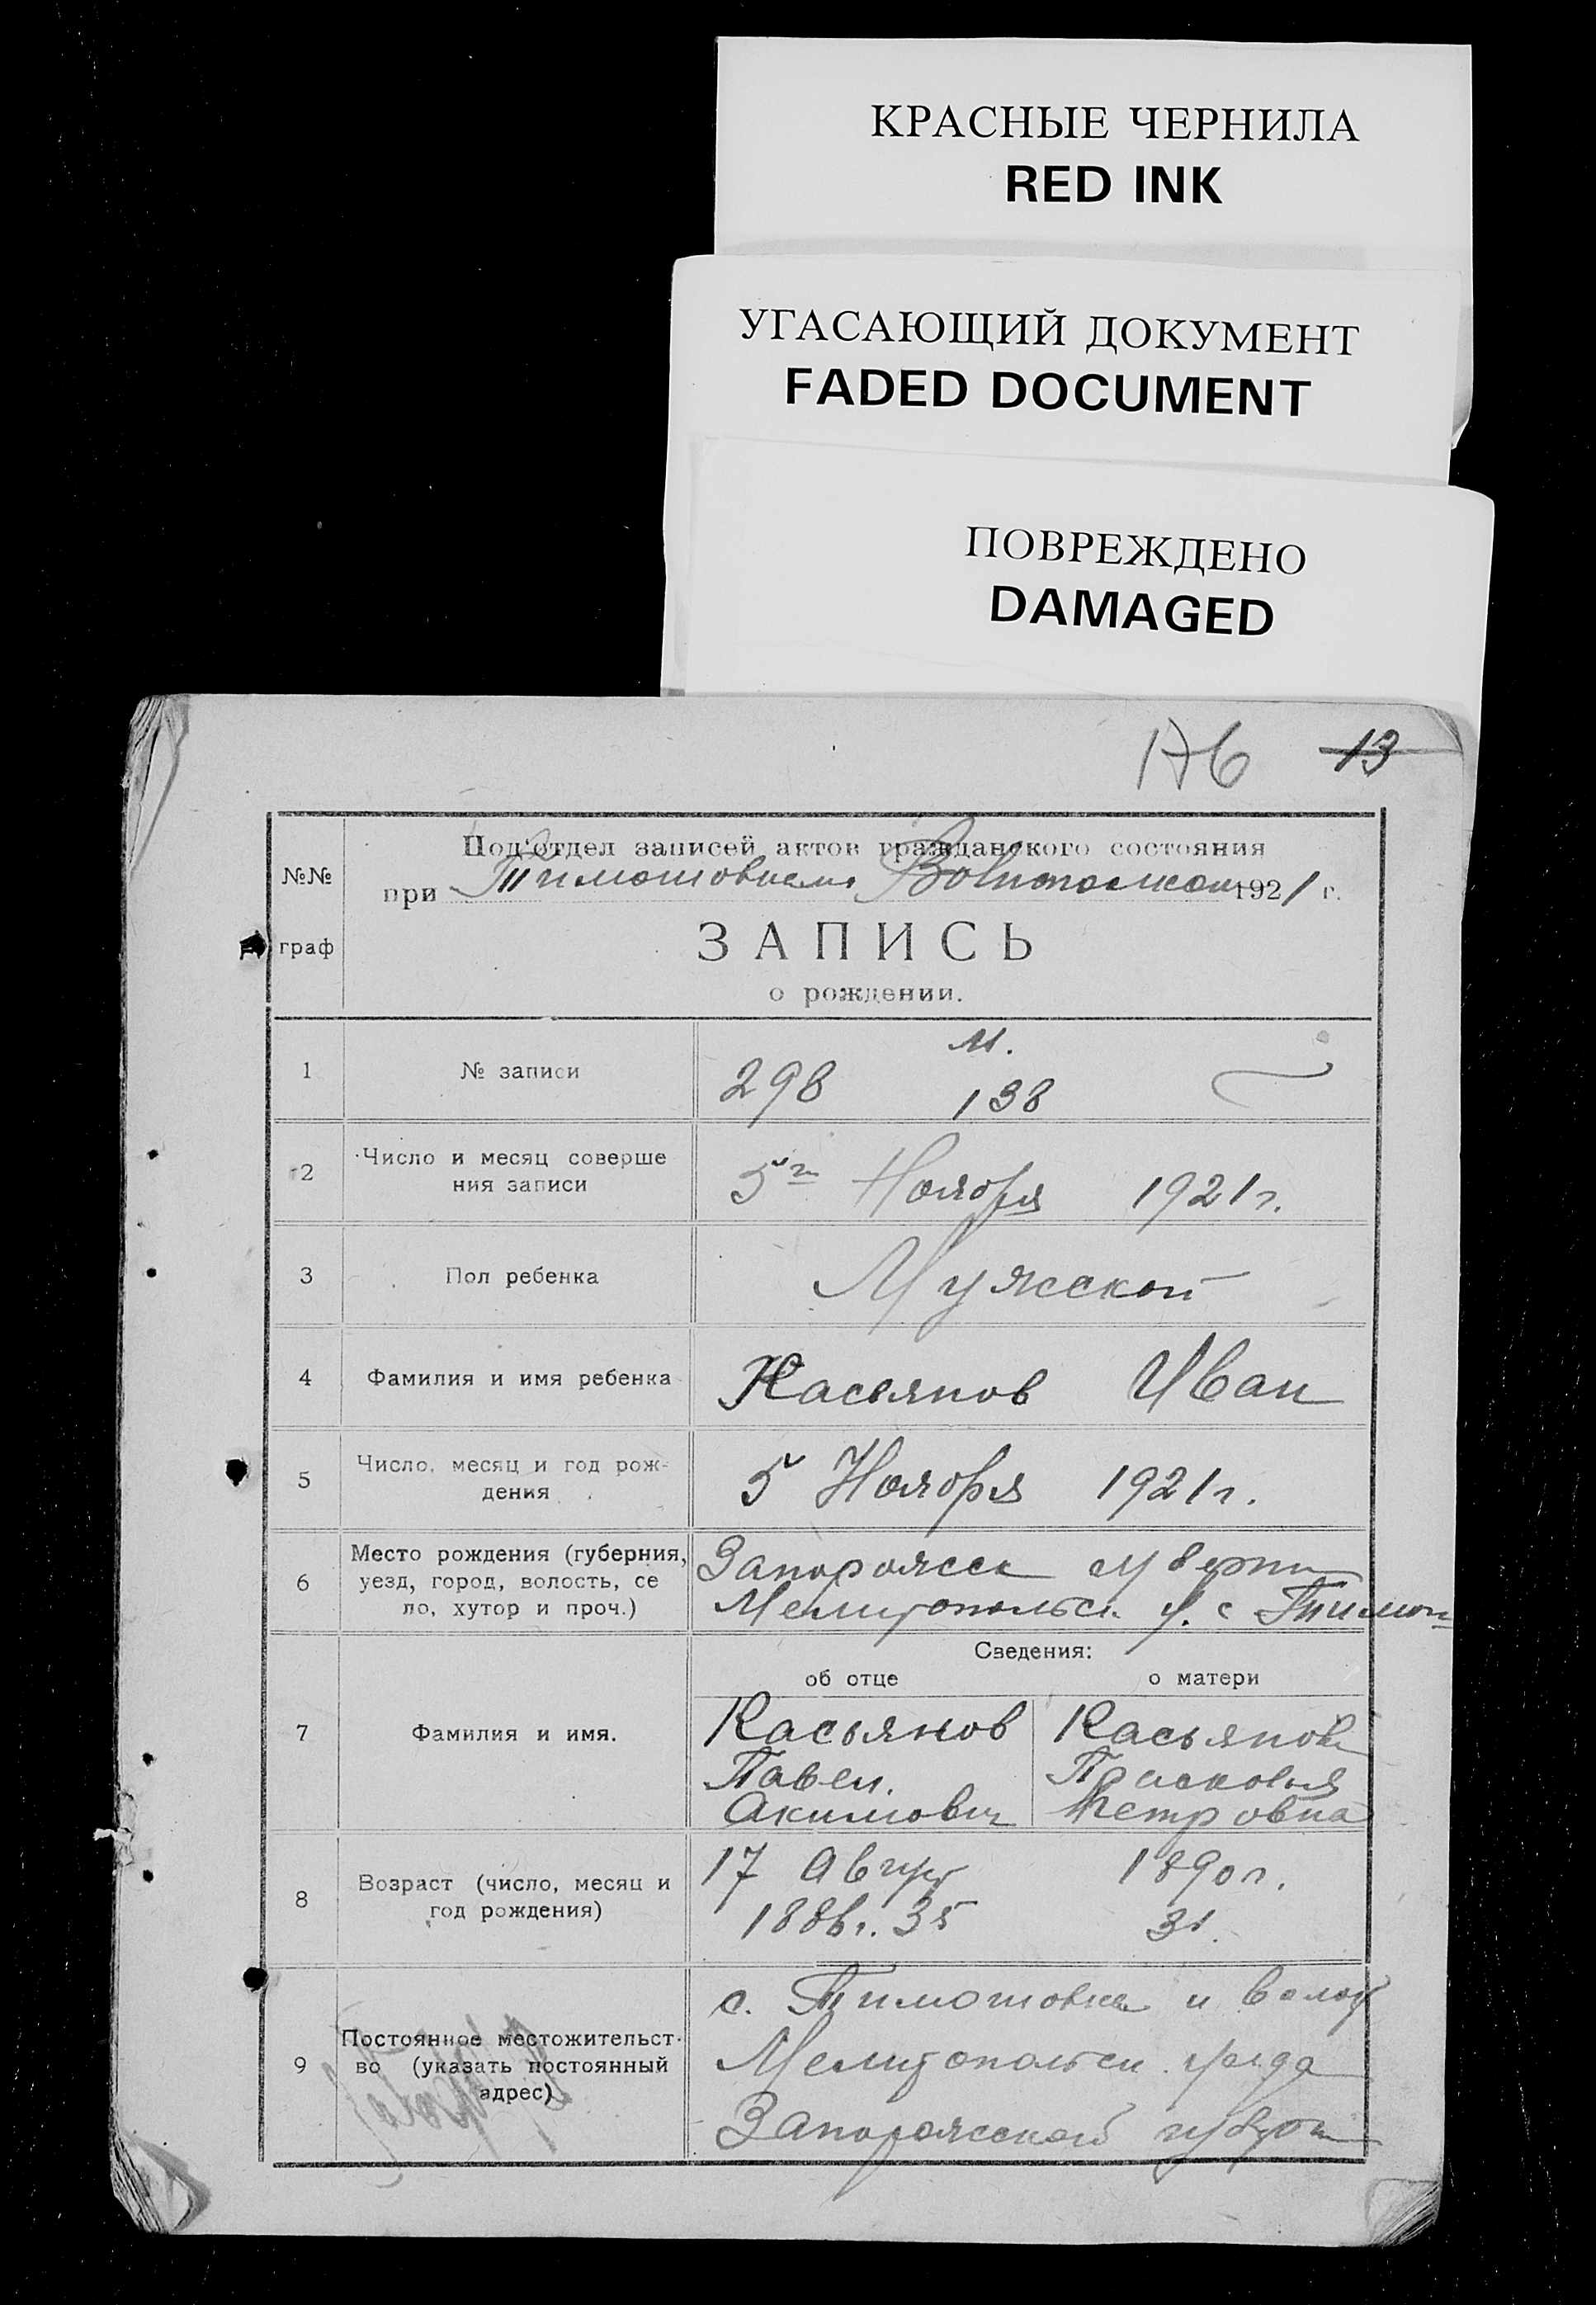 КРАСНЫЕ ЧЕРНИЛА
RED INK
УГАСАЮЩИЙ ДОКУМЕНТ
FADED DOCUMENT
ПОВРЕЖДЕНО
DAMAGED
176 13
Под'отдел записей актов гражданского состояния
№№
при Тимошовском 1921 г.
граф
ЗАПИСЬ
о рождении.
м.
1 № записи 298 138
2 Число и месяц соверше
ния записи 5го Ноября 1921 г.
3 Пол ребенка Мужской
4 Фамилия и имя ребенка Касьянов Иван
5 Число, месяц и год рож-
дения 5 Ноября 1921 г.
6 Место рождения (губерния, Запорожск губерни
уезд, город, волость, се
ло, хутор и проч.) Мелитопольск. у. с Тимош
Сведения:
об отце о матери
7 Фамилия и имя. Касьянов Касьянова
Павел. Прасковья
Акимович Петровна
8 Возраст (число, месяц и 17 Август 1890 г.
год рождения) 1886 г. 35 31.
с. Тимошовка и волос
9 Постоянное местожительст-
во (указать постоянный Мелитопольск. уезда
адрес)
Запорожской губерн